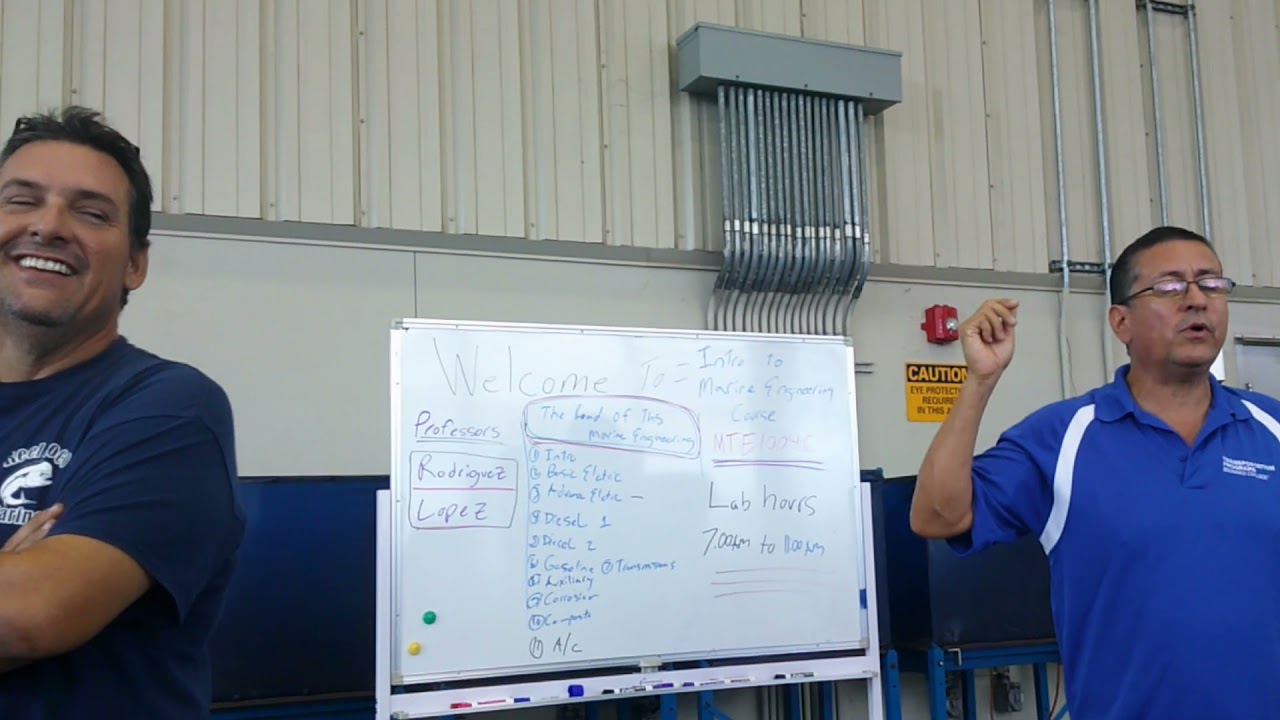 Welcome To = Intro to
Marine Engineering
Course
MTE1004C
Professors
Rodriguez
Lopez
The of This
Marine Engineering
① Intro
② Basic Eletric
③ Eletric —
④ Diesel 1
Diesel 2
⑥ Gasoline ⑦ Transmissions
⑧ Auxiliary
⑨ Corrosion
⑩
⑪ A/c
Lab hours
7.00pm to 11.00pm
CAUTION
EYE PROTECTION
REQUIRED
IN THIS
TRANSPORTATION
PROGRAMS